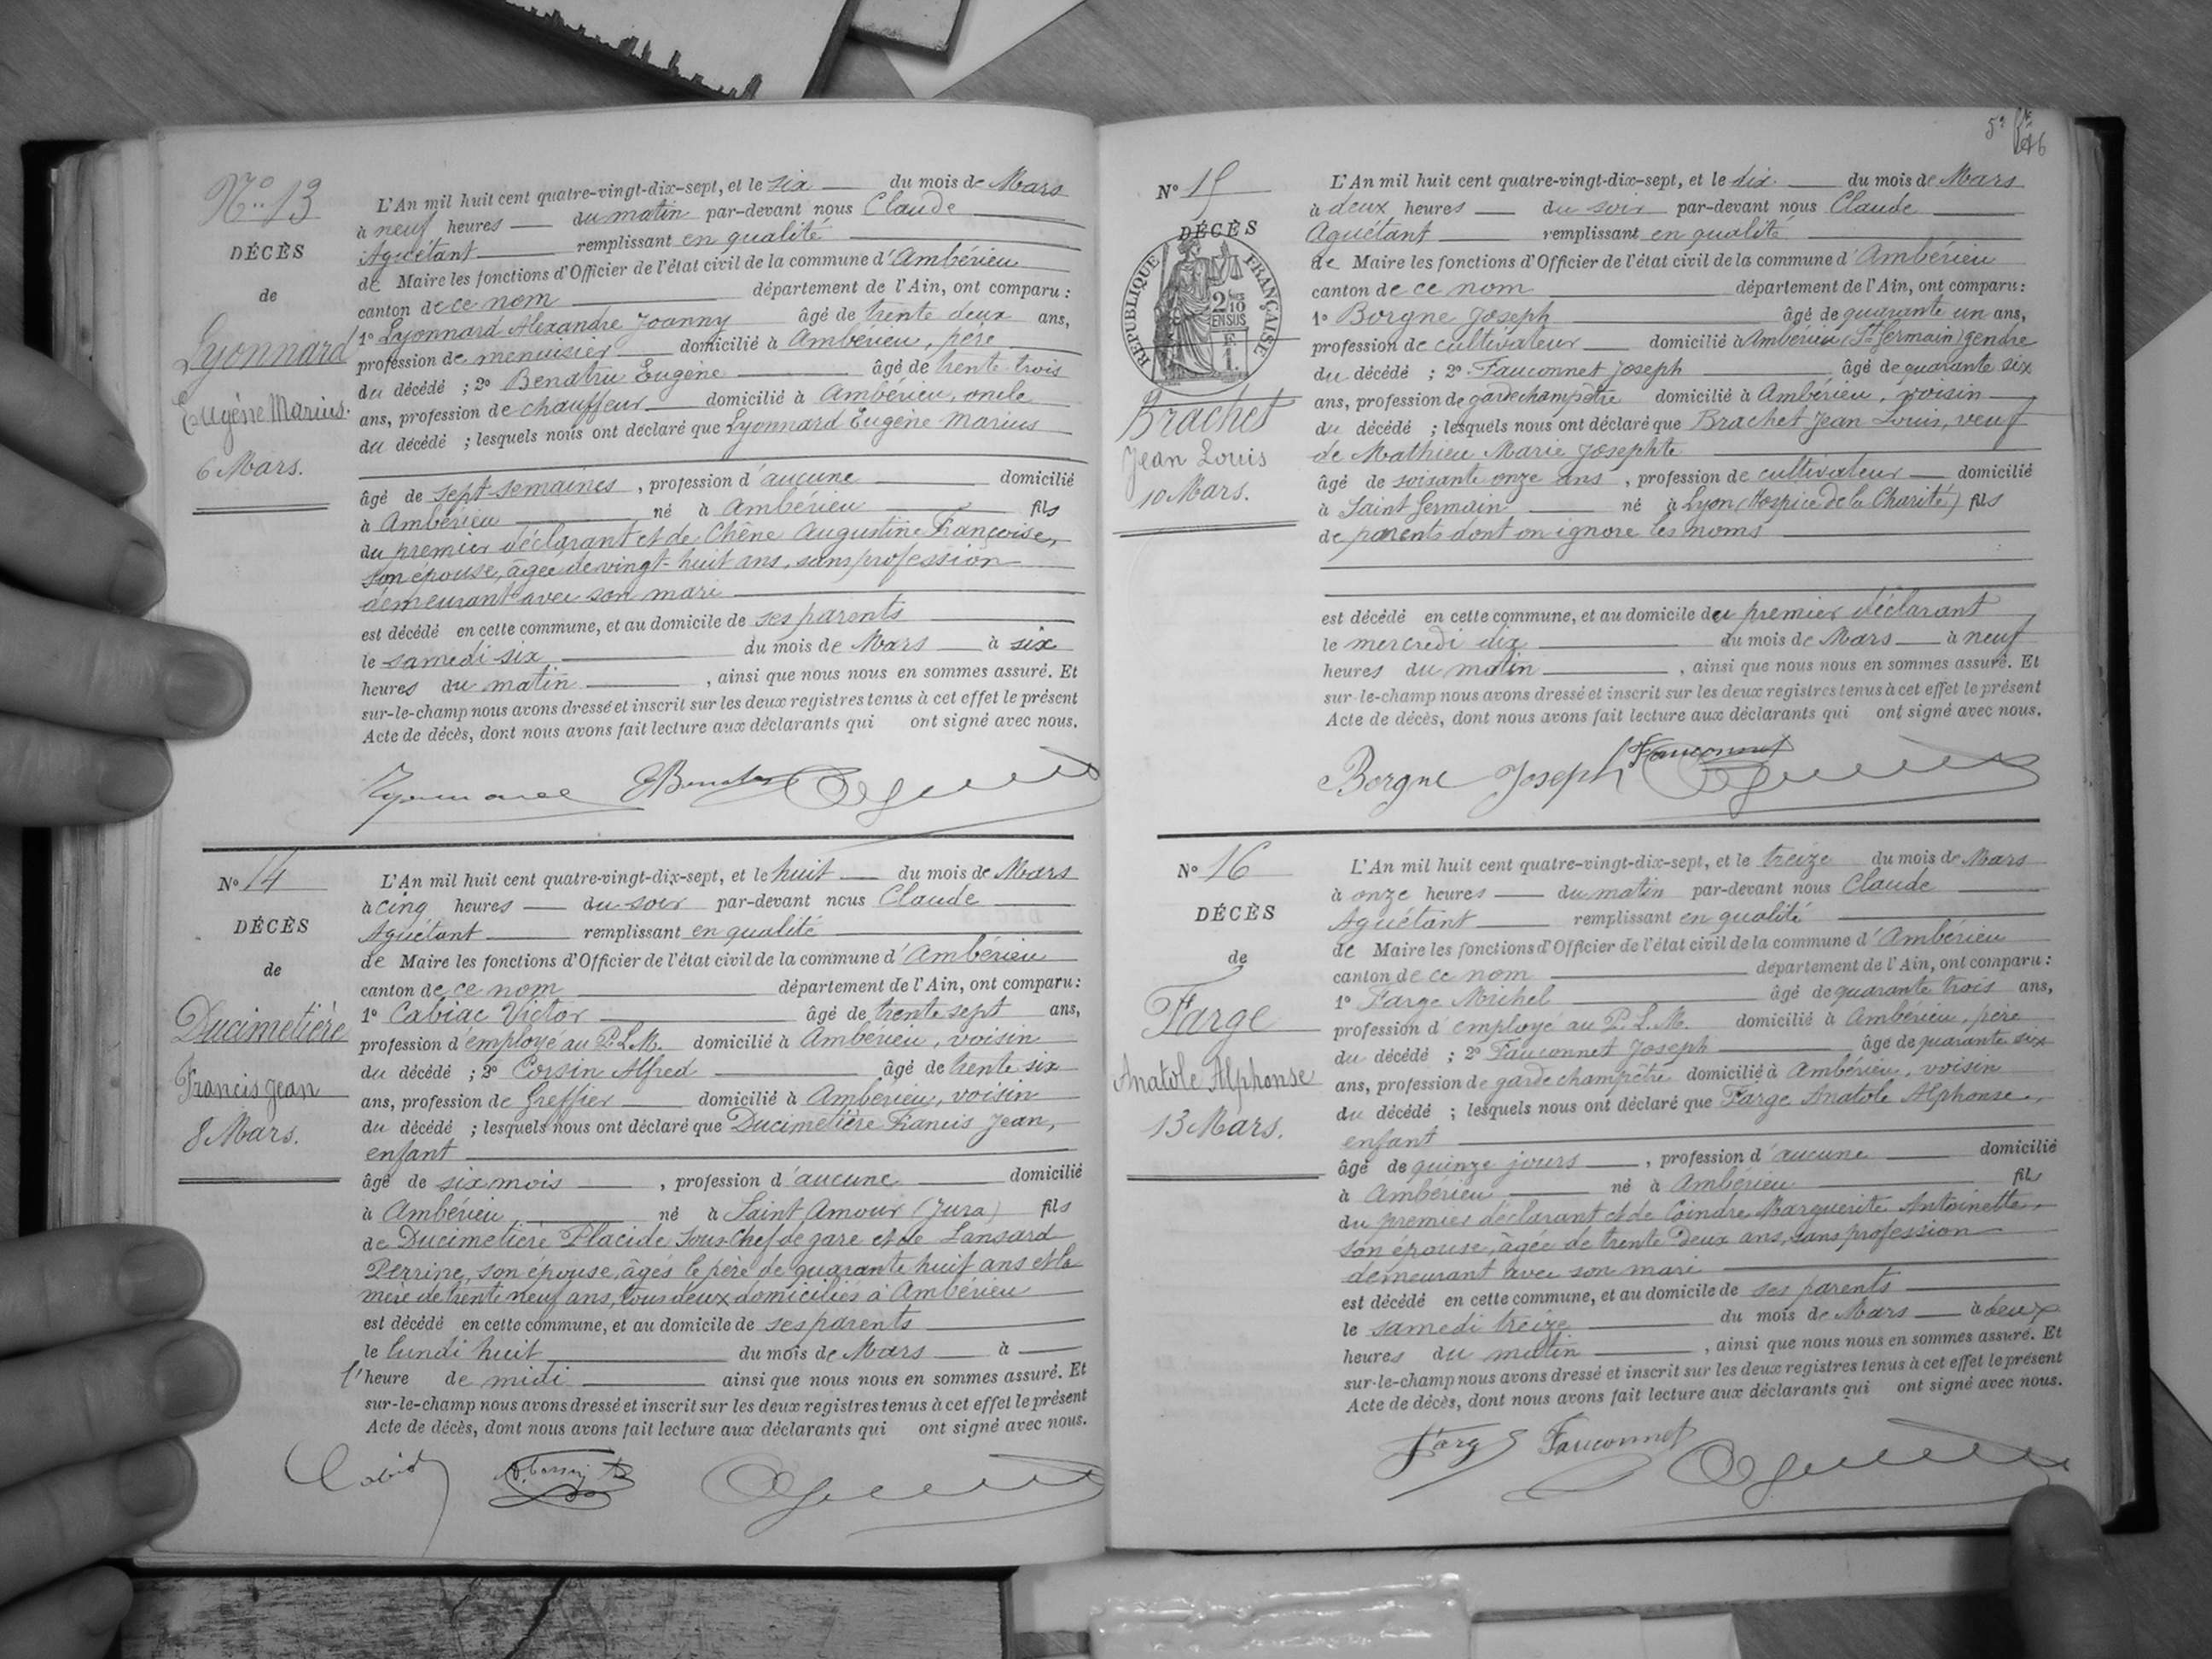 N° 13
DÉCÈS
de
Lyonnard
Eugène Marius.
6 Mars.
L'An mil huit cent quatre-vingt-dix-sept, et le six du mois de Mars
à neuf heures du matin par-devant nous Claude
Aguétant remplissant en qualité
de Maire les fonctions d'Officier de l'état civil de la commune d'Ambérieu
canton de ce nom département de l'Ain, ont comparu :
1° Lyonnard Alexandre Joanny âgé de trente deux ans,
profession de menuisier domicilié à Ambérieu, père
du décédé ; 2° Benatru Eugène âgé de trente trois
ans, profession de chauffeur domicilié à Ambérieu, oncle
du décédé ; lesquels nous ont déclaré que Lyonnard Eugène Marius
âgé de sept semaines, profession d'aucune domicilié
à Ambérieu né à Ambérieu fils
du premier déclarant et de Chêne Augustine Françoise,
son épouse, âgée de vingt-huit ans, sans profession
demeurant avec son mari
est décédé en cette commune, et au domicile de ses parents
le samedi six du mois de Mars à six
heures du matin, ainsi que nous nous en sommes assuré. Et
sur-le-champ nous avons dressé et inscrit sur les deux registres tenus à cet effet le présent
Acte de décès, dont nous avons fait lecture aux déclarants qui ont signé avec nous.
N° 14
DÉCÈS
de
Ducimetière
Francis Jean
8 Mars.
L'An mil huit cent quatre-vingt-dix-sept, et le huit du mois de Mars
à cinq heures du soir par-devant nous Claude
Aguétant remplissant en qualité
de Maire les fonctions d'Officier de l'état civil de la commune d'Ambérieu
canton de ce nom département de l'Ain, ont comparu :
1° Cabiac Victor âgé de trente sept ans,
profession d'employé au P.L.M. domicilié à Ambérieu, voisin
du décédé ; 2° Corsin Alfred âgé de trente six
ans, profession de Greffier domicilié à Ambérieu, voisin
du décédé ; lesquels nous ont déclaré que Ducimetière Francis Jean,
enfant
âgé de six mois, profession d'aucune domicilié
à Ambérieu né à Saint Amour (Jura) fils
de Ducimetière Placide Sous-Chef de gare et de Lansard
Perrine, son épouse, âgés le père de quarante huit ans et la
mère de trente neuf ans, tous deux domiciliés à Ambérieu
est décédé en cette commune, et au domicile de ses parents
le lundi huit du mois de Mars à
l'heure de midi ainsi que nous nous en sommes assuré. Et
sur-le-champ nous avons dressé et inscrit sur les deux registres tenus à cet effet le présent
Acte de décès, dont nous avons fait lecture aux déclarants qui ont signé avec nous.
N° 15
DÉCÈS
RÉPUBLIQUE FRANÇAISE
2/10
EN SUS
Brachet
Jean Louis
10 Mars.
L'An mil huit cent quatre-vingt-dix-sept, et le dix du mois de Mars
à deux heures du soir par-devant nous Claude
Aguétant remplissant en qualité
de Maire les fonctions d'Officier de l'état civil de la commune d'Ambérieu
canton de ce nom département de l'Ain, ont comparu :
1° Borgne Joseph âgé de quarante un ans,
profession de cultivateur domicilié à Ambérieu (St Germain) gendre
du décédé ; 2° Fauconnet Joseph âgé de quarante six
ans, profession de garde champêtre domicilié à Ambérieu, voisin
du décédé ; lesquels nous ont déclaré que Brachet Jean Louis, veuf
de Mathieu Marie Josephte
âgé de soixante onze ans, profession de cultivateur domicilié
à Saint Germain né à Lyon (Hospice de la Charité) fils
de parents dont on ignore les noms
est décédé en cette commune, et au domicile du premier déclarant
le mercredi dix du mois de Mars à neuf
heures du matin, ainsi que nous nous en sommes assuré. Et
sur-le-champ nous avons dressé et inscrit sur les deux registres tenus à cet effet le présent
Acte de décès, dont nous avons fait lecture aux déclarants qui ont signé avec nous.
Borgne Joseph Fauconnet
N° 16
DÉCÈS
de
Farge
Anatole Alphonse
13 Mars.
L'An mil huit cent quatre-vingt-dix-sept, et le treize du mois de Mars
à onze heures du matin par-devant nous Claude
Aguétant remplissant en qualité
de Maire les fonctions d'Officier de l'état civil de la commune d'Ambérieu
canton de ce nom département de l'Ain, ont comparu :
1° Farge Michel âgé de quarante trois ans,
profession d'employé au P.L.M. domicilié à Ambérieu, père
du décédé ; 2° Fauconnet Joseph âgé de quarante six
ans, profession de garde champêtre domicilié à Ambérieu, voisin
du décédé ; lesquels nous ont déclaré que Farge Anatole Alphonse,
enfant
âgé de quinze jours, profession d'aucune domicilié
à Ambérieu né à Ambérieu fils
du premier déclarant et de Coindre Marguerite Antoinette,
son épouse, âgée de trente deux ans, sans profession
demeurant avec son mari
est décédé en cette commune, et au domicile de ses parents
le samedi treize du mois de Mars à deux
heures du matin, ainsi que nous nous en sommes assuré. Et
sur-le-champ nous avons dressé et inscrit sur les deux registres tenus à cet effet le présent
Acte de décès, dont nous avons fait lecture aux déclarants qui ont signé avec nous.
Farge Fauconnet